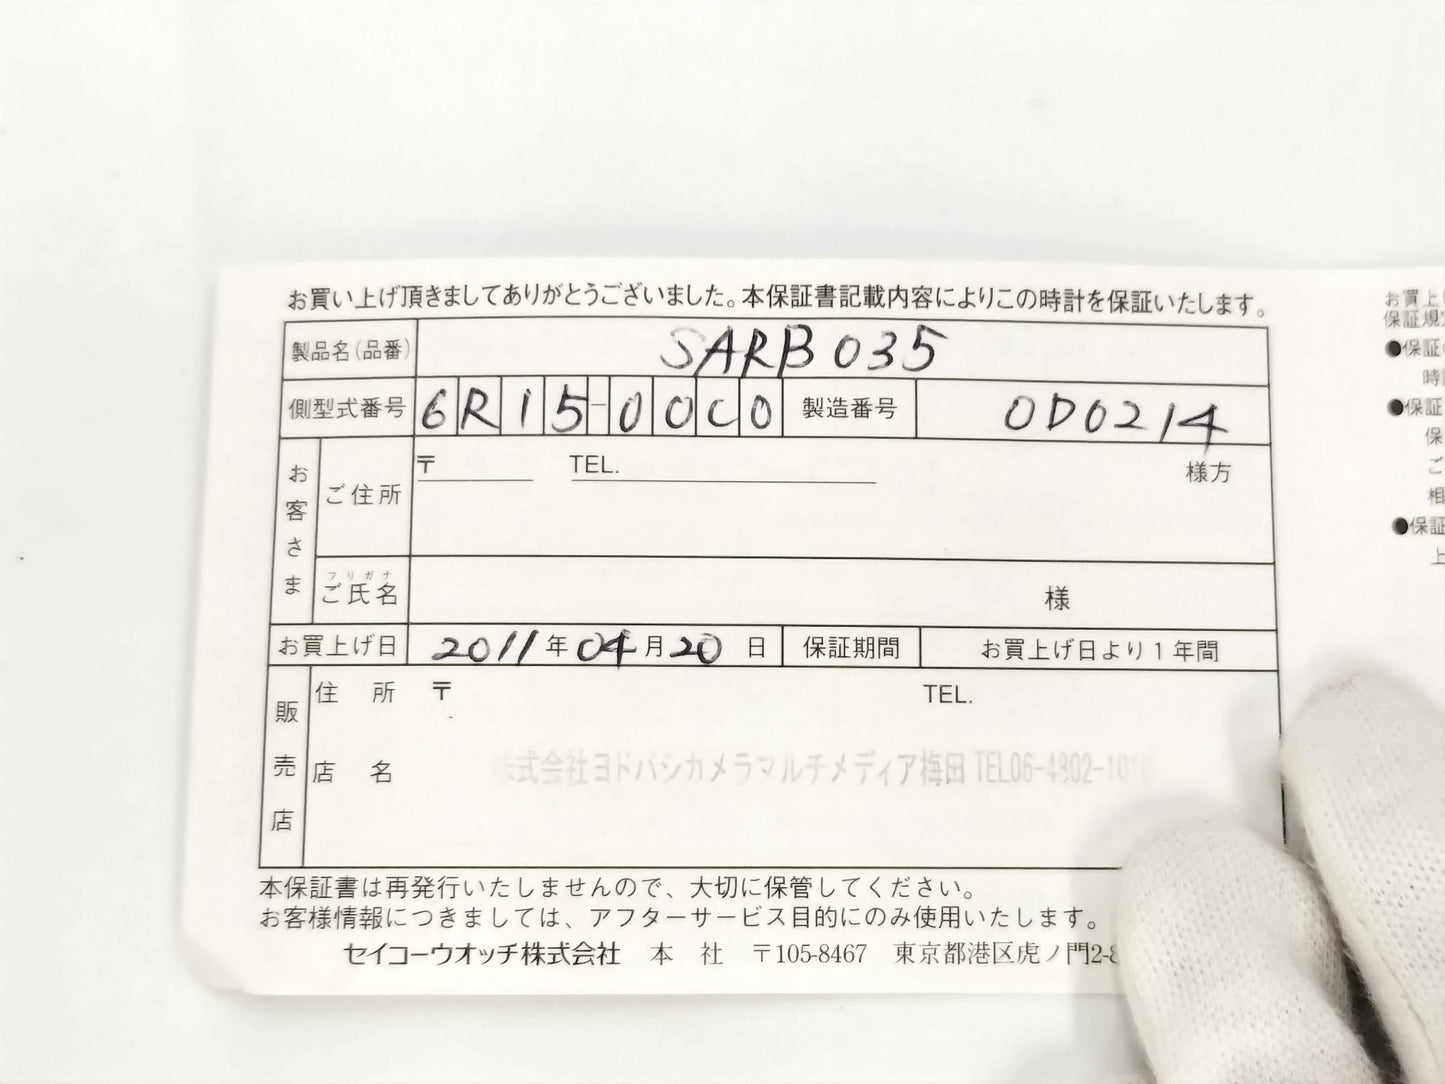 お買い上げ頂きましてありがとうございました。本保証書記載内容によりこの時計を保証いたします。
製品名(品番) SARB035
側型式番号 6R15-00C0 製造番号 0D0214
お客さま
ご住所 〒 TEL. 様方
フリガナ
ご氏名 様
お買上げ日 2011年04月20日 保証期間 お買上げ日より1年間
販売店
住所 〒 TEL.
店名 株式会社ヨドバシカメラマルチメディア梅田 TEL06-4802-1010
本保証書は再発行いたしませんので、大切に保管してください。
お客様情報につきましては、アフターサービス目的にのみ使用いたします。
セイコーウオッチ株式会社 本社 〒105-8467 東京都港区虎ノ門2-8
お買上
保証規
●保証
時
●保証
保
ご
相
●保証
上